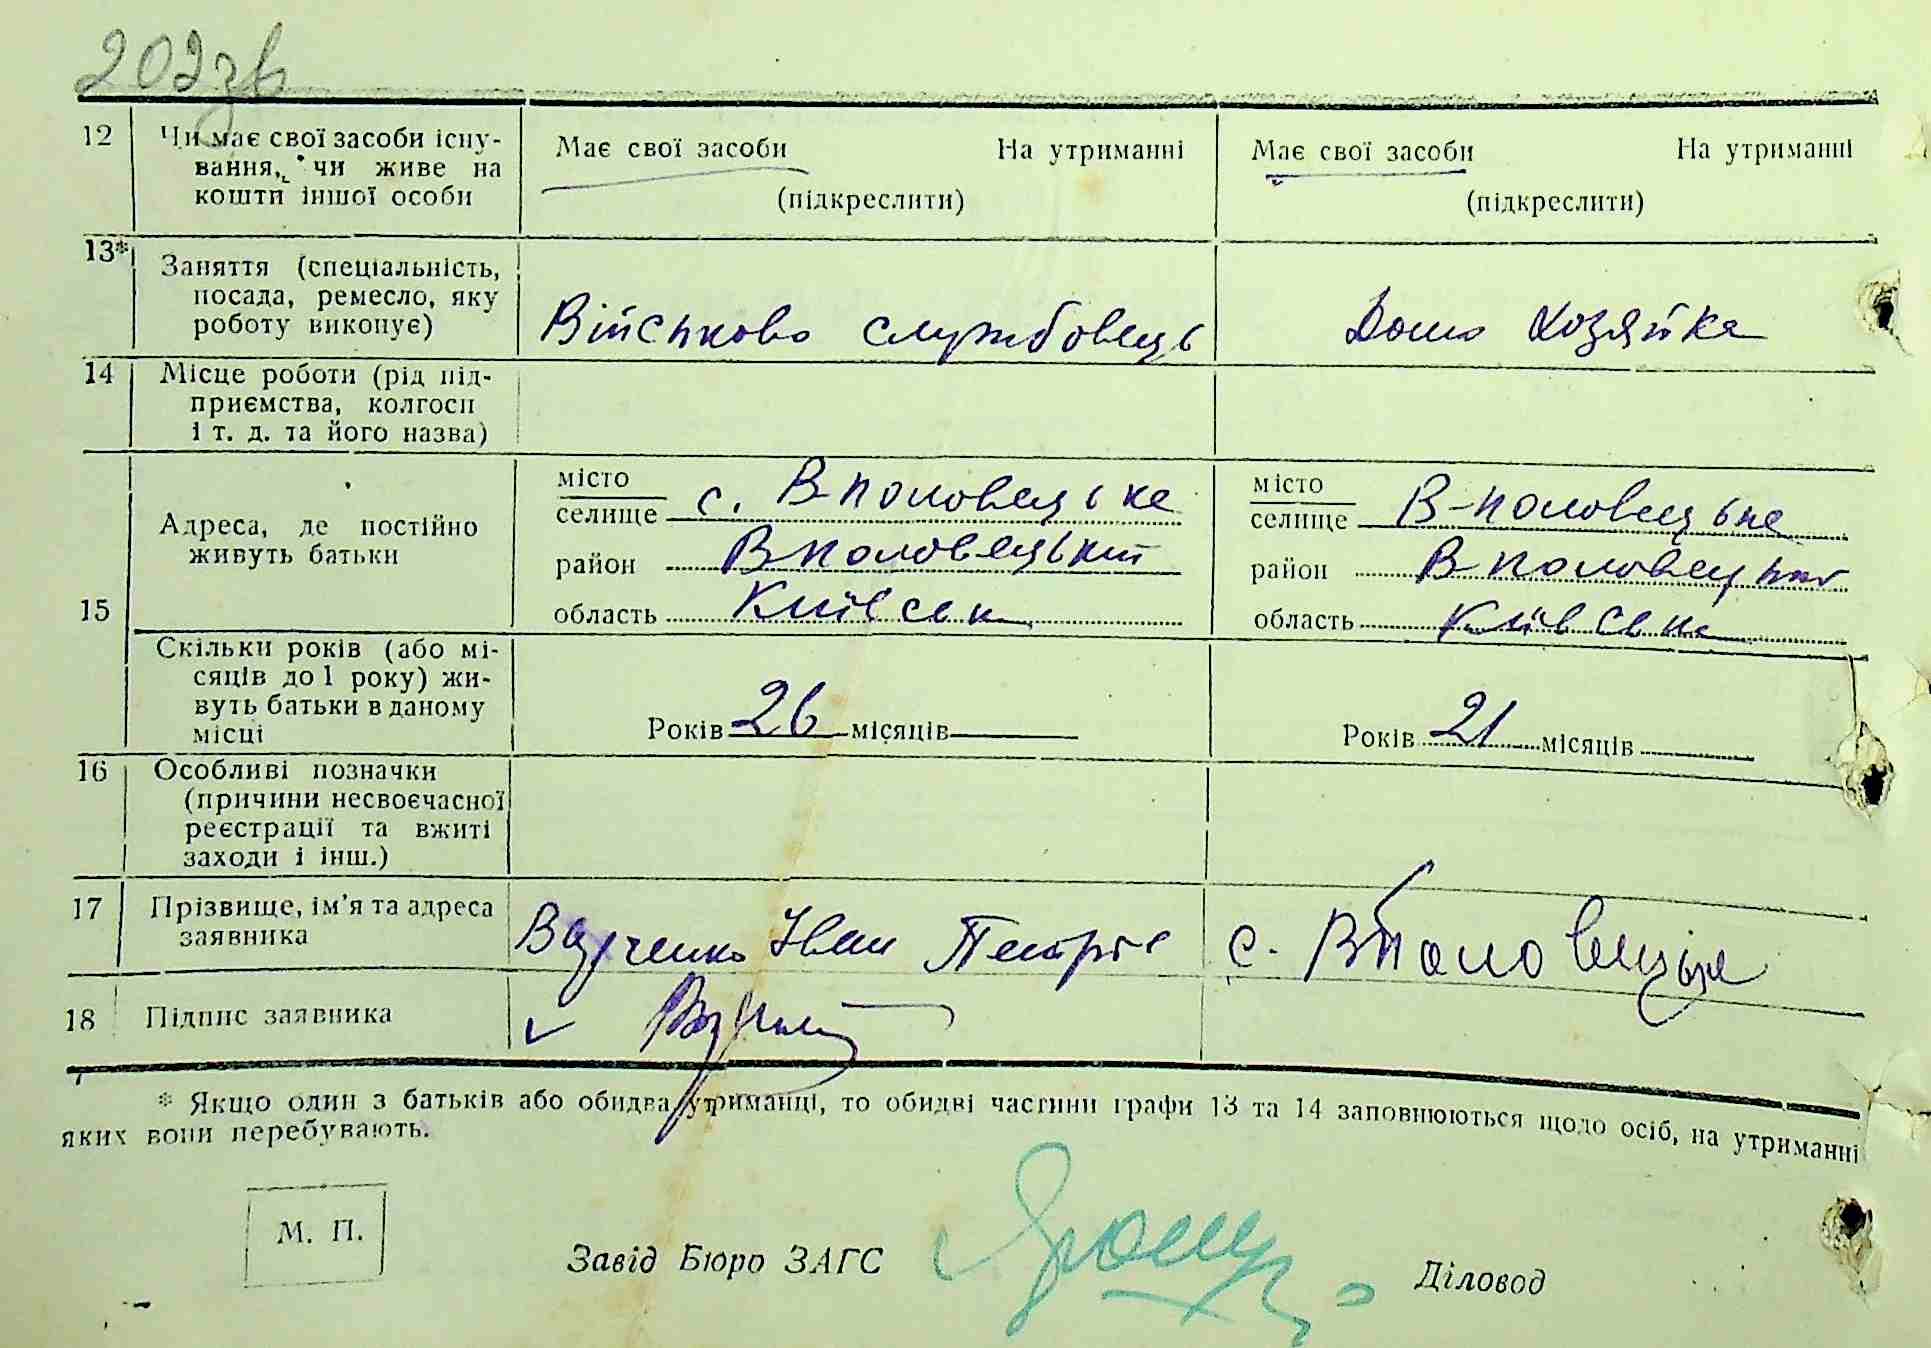 202зв
12 Чи має свої засоби існу-
вання, чи живе на
кошти іншої особи
Має свої засоби На утриманні
(підкреслити)
Має свої засоби На утриманні
(підкреслити)
13* Заняття (спеціальність,
посада, ремесло, яку
роботу виконує)
Військово службовець
Домо Хозяйка
14 Місце роботи (рід під-
приємства, колгосп
і т. д. та його назва)
15
Адреса, де постійно
живуть батьки
місто
селище с. В-половецьке
район Вполовецький
область Київськ
місто
селище В-половецьке
район В-половецьк
область Київська
Скільки років (або мі-
сяців до 1 року) жи-
вуть батьки в даному
місці
Років 26 місяців
Років 21 місяців
16 Особливі позначки
(причини несвоєчасної
реєстрації та вжиті
заходи і інш.)
17 Прізвище, ім'я та адреса
заявника
Іван Петров с. Вполовецьке
18 Підпис заявника
* Якщо один з батьків або обидва утриманці, то обидві частини графи 13 та 14 заповнюються щодо осіб, на утриманні
яких вони перебувають.
М. П.
Завід Бюро ЗАГС
Діловод